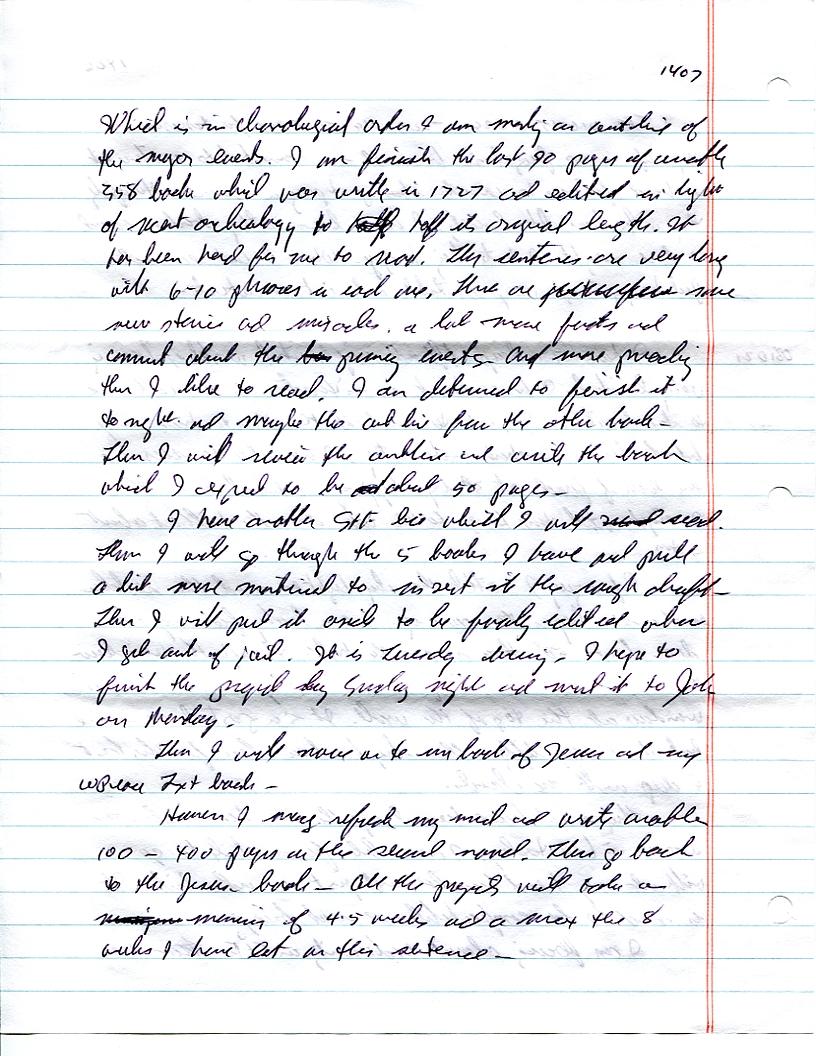 1407
Which is in chronological order I am making an outline of
the major events. I am finish the last 90 pages of another
358 book which was write in 1727 and edited in light
of recent archeology to half its original length. It
has been hard for me to read. The sentences are very long
with 6-10 phrases in each one. There are some
new stories and miracles. a lot more facts and
comment about the primary events. And more preaching
than I like to read. I am determed to finish it
tonight and maybe the outline from the other book -
Then I will review the outline and write the book
which I expect to be about 50 pages -
I have another which I will read.
Then I will go through the 5 books I have and pull
a bit more material to insert it the rough draft -
Then I will put it aside to be finally edited when
I get out of jail. It is Tuesday evening. I hope to
finish the project by Sunday night and mail it to John
on Monday.
Then I will move on to my book of Jesus and my
Text book -
However I may refresh my mind and write another
100 - 400 pages on the second novel. Then go back
to the Jesus book - All the projects will take a
of 4-5 weeks and a max the 8
weeks I have left on this sentence -